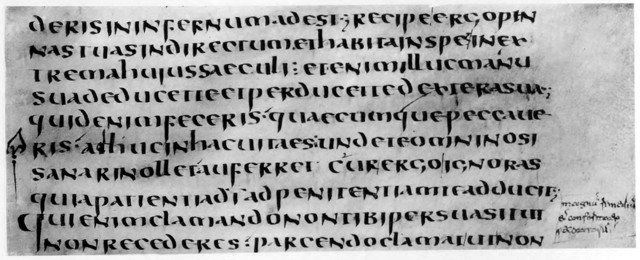 deris in infernum adest; recipe ergo pin
nas tuas in directum et habita in spe in ex
trema hujus saeculi; etenim illuc manu
sua deducet te et perducet te dextera sua;
quid enim feceris· quaecumque peccaue
ris· adhuc in hac uita es; unde te omnino si
sanari nollet auferret cur ergo ignoras
quia patientia di̅ ad penitentiam te adducit;
Qui enim clamando non tibi persuasit ut
non recederes: parcendo clamat ut non